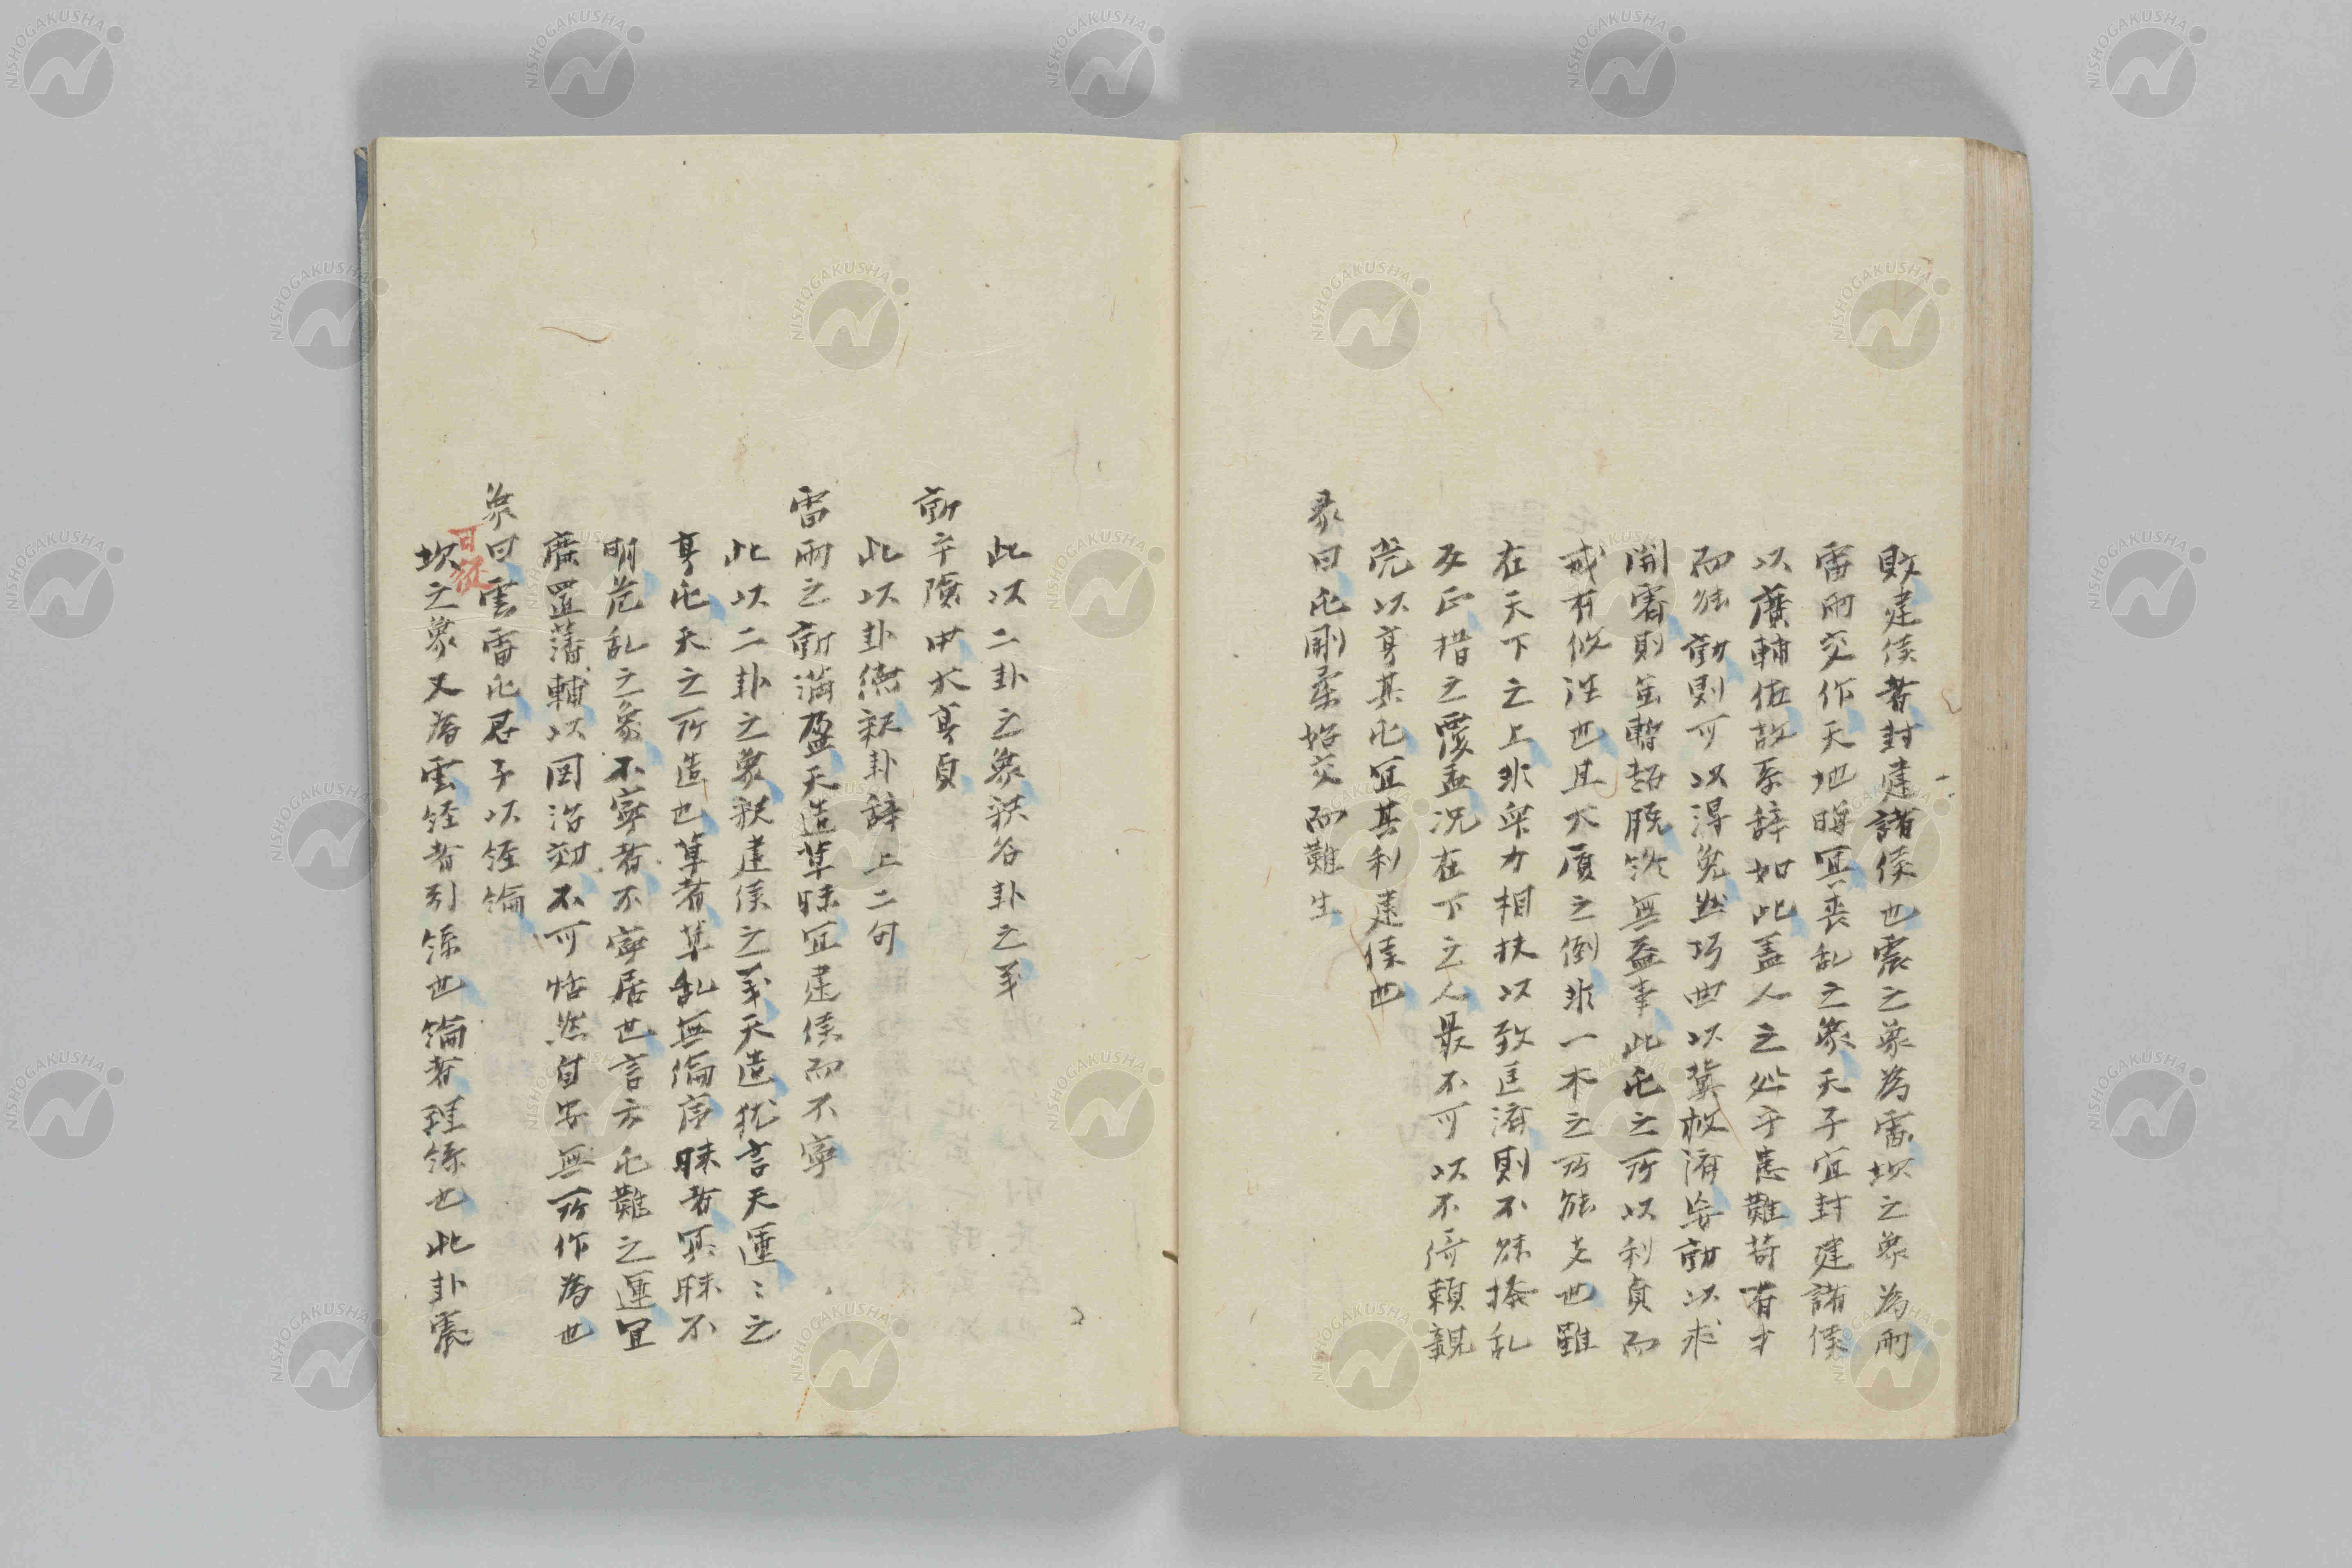 敗建侯者封建諸侯也震之象為雷坎之象為雨
雷雨交作天地晦冥喪乱之象天子宜封建諸侯
以廣輔佐故系辞如此蓋人之処于患難苟有才
而能動則可以得免然巧曲以冀救済妄動以求
開霽則雖暫得脱終無益事此屯之所以利貞而
戒有攸往也且大厦之倒非一木之所能支也雖
在天下之上非衆力相扶以致匡済則不能撥乱
反正措之覆盂況在下之人最不可以不倚頼親
党以亨其屯宜其利建侯也
彖曰屯剛柔始交而難生
此以二卦之象釈名卦之義
動乎険中大亨貞
此以卦徳釈卦辞上二句
雷雨之動満盈天造草昧宜建侯而不寧
此以二卦之象釈建侯之義天造猶言天運〻之
享屯天之所造也草者草乱無倫序昧者冥昧不
明荒乱之象不寧者不寧居也言方屯難之運宜
廣置藩輔以図治効不可恬然自安無所作為也
象曰雲雷屯君子以経綸
坎之象又為雲経者引絲也綸者理絲也此卦震
NISHOGAKUSHA